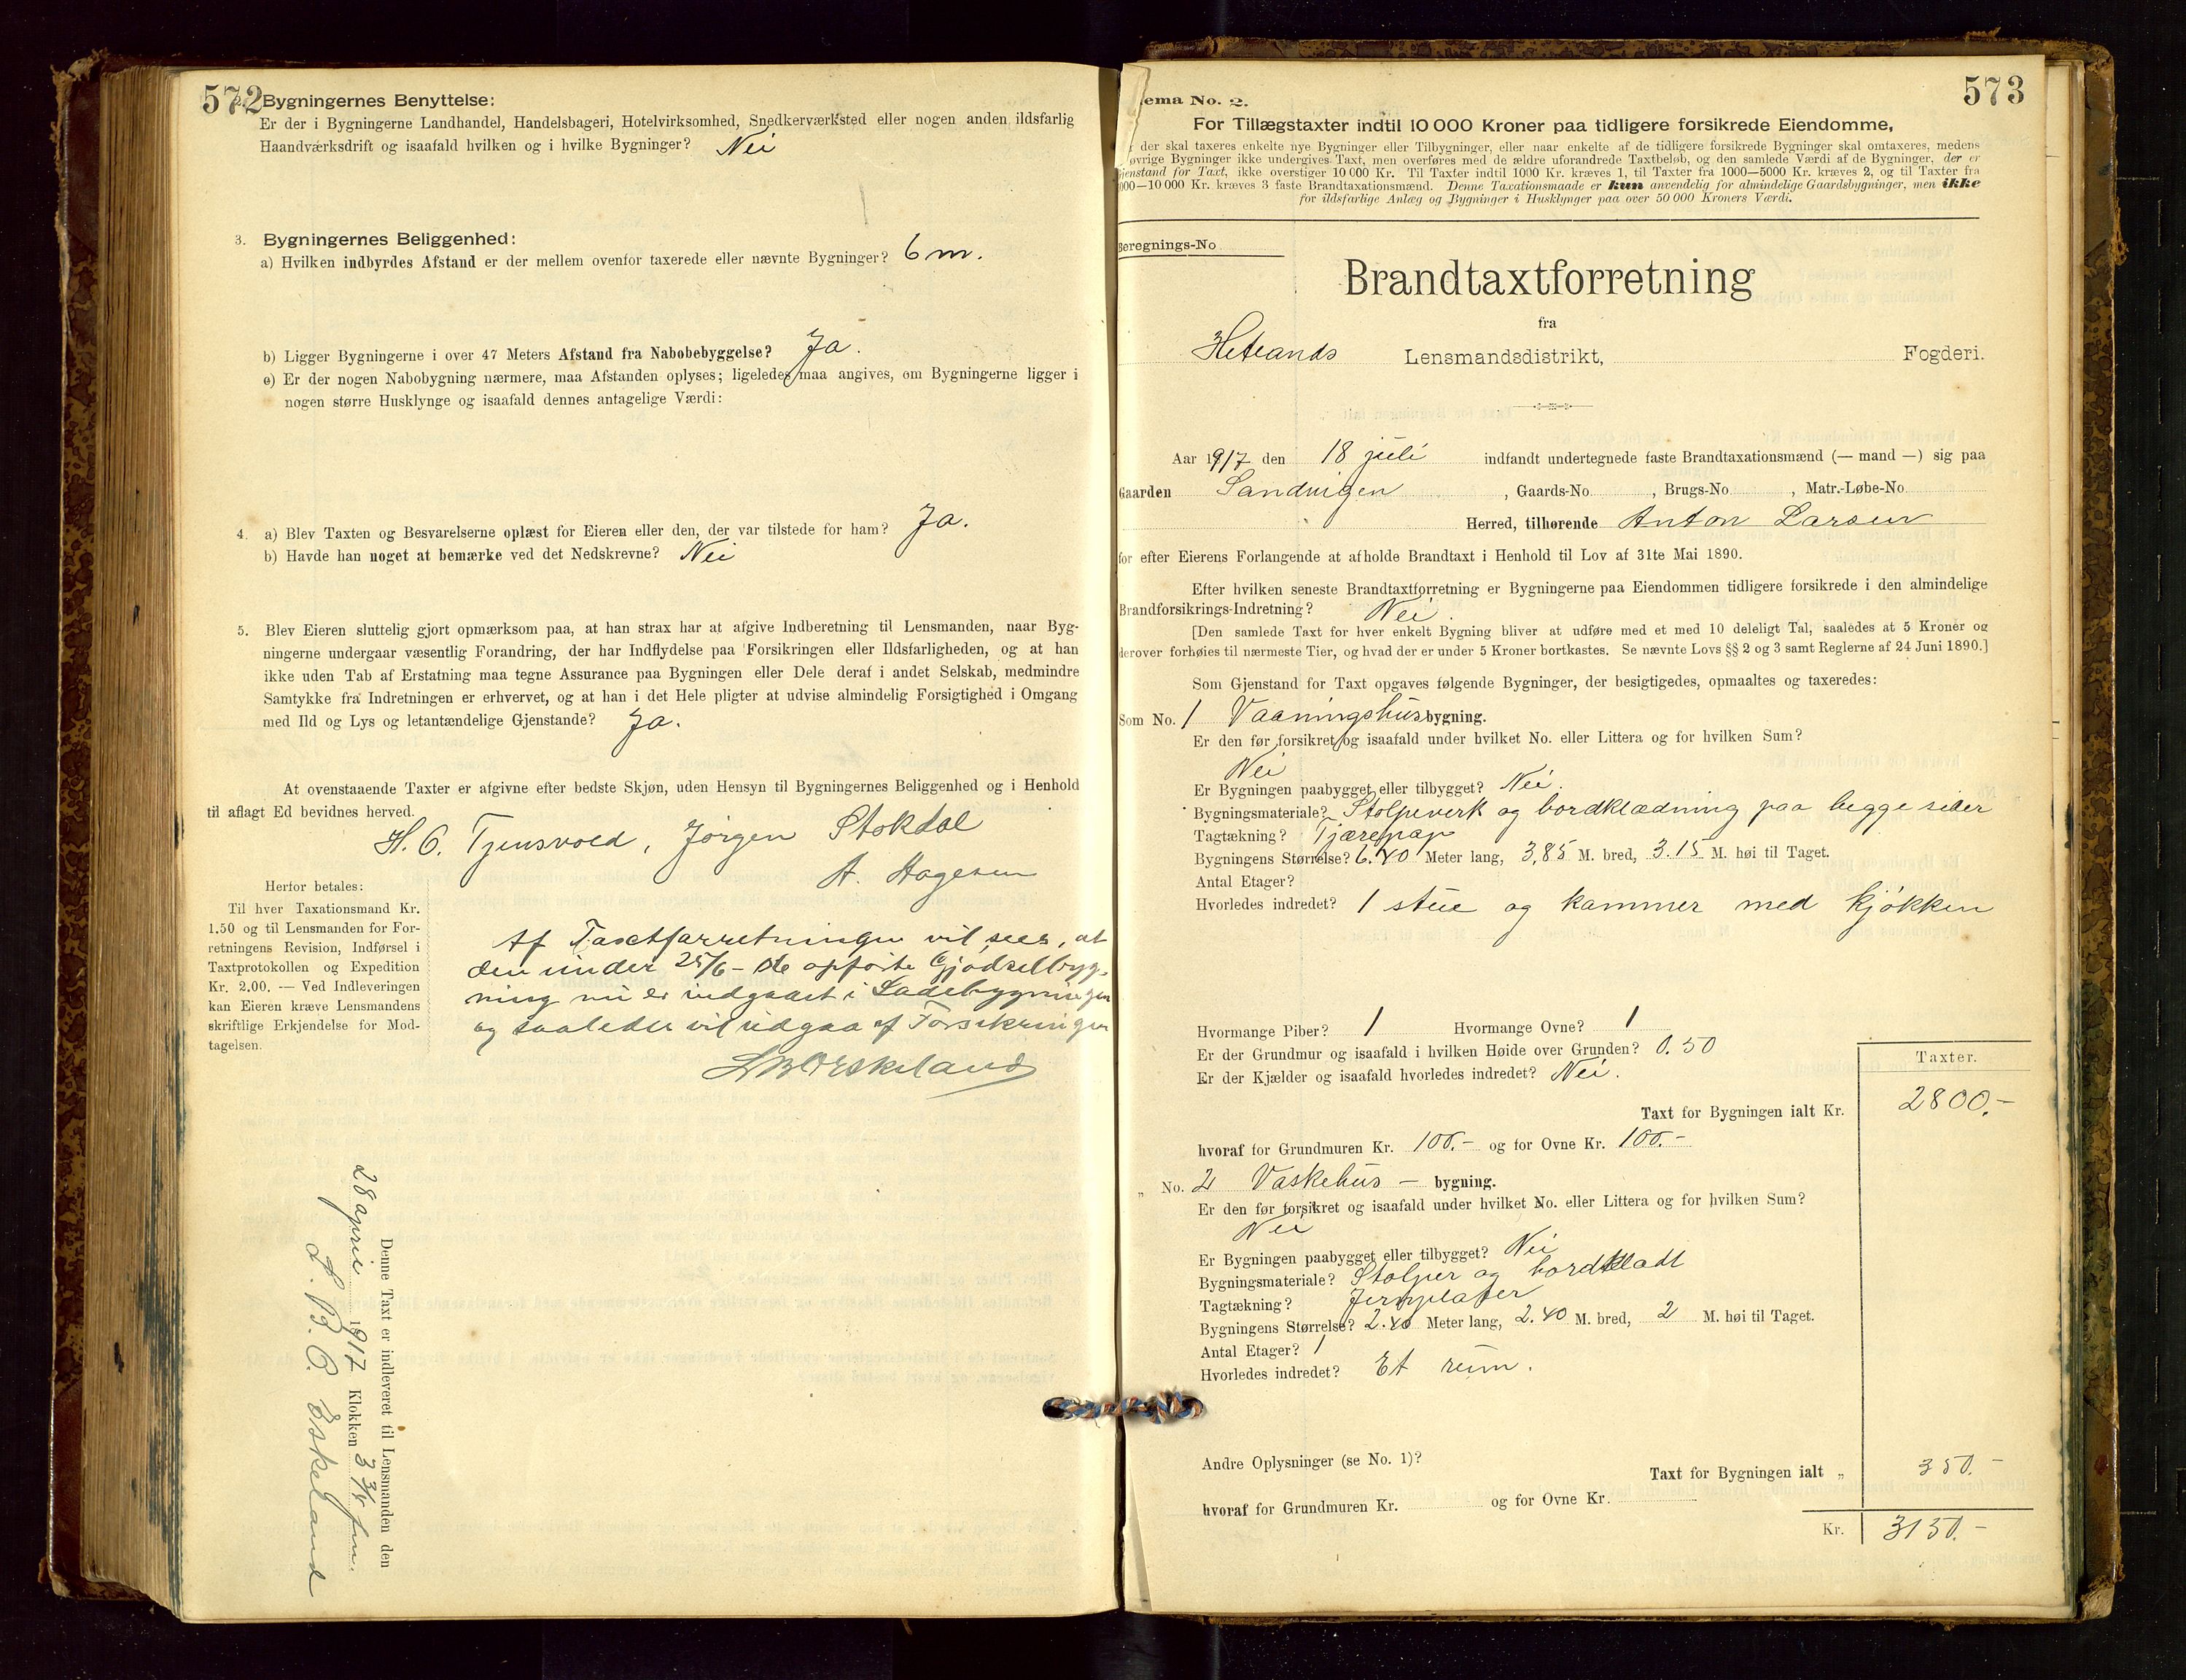 572
2. Bygningernes Benyttelse:
Er der i Bygningerne Landhandel, Handelsbageri, Hotelvirksomhed, Snedkerværksted eller nogen anden ildsfarlig
Haandværksdrift og isaafald hvilken og i hvilke Bygninger? Nei
3. Bygningernes Beliggenhed:
a) Hvilken indbyrdes Afstand er der mellem ovenfor taxerede eller nævnte Bygninger? 6 m.
b) Ligger Bygningerne i over 47 Meters Afstand fra Nabobebyggelse? Ja.
c) Er der nogen Nabobygning nærmere, maa Afstanden oplyses; ligeledes maa angives, om Bygningerne ligger i
nogen større Husklynge og isaafald dennes antagelige Værdi:
4. a) Blev Taxten og Besvarelserne oplæst for Eieren eller den, der var tilstede for ham? Ja.
b) Havde han noget at bemærke ved det Nedskrevne? Nei
5. Blev Eieren sluttelig gjort opmærksom paa, at han strax har at afgive Indberetning til Lensmanden, naar Byg-
ningerne undergaar væsentlig Forandring, der har Indflydelse paa Forsikringen eller Ildsfarligheden, og at han
ikke uden Tab af Erstatning maa tegne Assurance paa Bygningen eller Dele deraf i andet Selskab, medmindre
Samtykke fra Indretningen er erhvervet, og at han i det Hele pligter at udvise almindelig Forsigtighed i Omgang
med Ild og Lys og letantændelige Gjenstande? Ja.
At ovenstaaende Taxter er afgivne efter bedste Skjøn, uden Hensyn til Bygningernes Beliggenhed og i Henhold
til aflagt Ed bevidnes herved.
H. O. Tjensvold, Jørgen Stokdal
A. Hagesen
Herfor betales:
Til hver Taxationsmand Kr.
1.50 og til Lensmanden for For-
retningens Revision, Indførsel i
Taxtprotokollen og Expedition
Kr. 2.00. — Ved Indleveringen
kan Eieren kræve Lensmandens
skriftlige Erkjendelse for Mod-
tagelsen.
Af Taxtforretningen vil sees, at
den under 25/6-06 opførte Gjødselbyg-
ning nu er indgaaet i Ladebygningen
og saaledes vil udgaa af Forsikringen
LBO Eskeland
Denne Taxt er indleveret til Lensmanden den
28 april 1917 Klokken 3 3/4 fm.
L. B. O. Eskeland
573
ema No. 2.
For Tillægstaxter indtil 10 000 Kroner paa tidligere forsikrede Eiendomme,
der skal taxeres enkelte nye Bygninger eller Tilbygninger, eller naar enkelte af de tidligere forsikrede Bygninger skal omtaxeres, medens
øvrige Bygninger ikke undergives Taxt, men overføres med de ældre uforandrede Taxtbeløb, og den samlede Værdi af de Bygninger, der er
jenstand for Taxt, ikke overstiger 10 000 Kr. Til Taxter indtil 1000 Kr. kræves 1, til Taxter fra 1000—5000 Kr. kræves 2, og til Taxter fra
000—10 000 Kr. kræves 3 faste Brandtaxationsmænd. Denne Taxationsmaade er kun anvendelig for almindelige Gaardsbygninger, men ikke
for ildsfarlige Anlæg og Bygninger i Husklynger paa over 50 000 Kroners Værdi.
Beregnings-No
Brandtaxtforretning
fra
Hetlands Lensmandsdistrikt, Fogderi.
Aar 1917 den 18 juli indfandt undertegnede faste Brandtaxationsmænd (— mand —) sig paa
Gaarden Sandvigen, Gaards-No. , Brugs-No. , Matr.-Løbe-No.
Herred, tilhørende Anton Larsen
for efter Eierens Forlangende at afholde Brandtaxt i Henhold til Lov af 31te Mai 1890.
Efter hvilken seneste Brandtaxtforretning er Bygningerne paa Eiendommen tidligere forsikrede i den almindelige
Brandforsikrings-Indretning? Nei.
[Den samlede Taxt for hver enkelt Bygning bliver at udføre med et med 10 deleligt Tal, saaledes at 5 Kroner og
derover forhøies til nærmeste Tier, og hvad der er under 5 Kroner bortkastes. Se nævnte Lovs §§ 2 og 3 samt Reglerne af 24 Juni 1890.]
Som Gjenstand for Taxt opgaves følgende Bygninger, der besigtigedes, opmaaltes og taxeredes:
Som No. 1 Vaaningshusbygning.
Er den før forsikret og isaafald under hvilket No. eller Littera og for hvilken Sum?
Nei
Er Bygningen paabygget eller tilbygget? Nei.
Bygningsmateriale? Stolpeverk og bordklædning paa begge sider
Tagtækning? Tjærepap
Bygningens Størrelse? 6.40 Meter lang, 3,85 M. bred, 3.15 M. høi til Taget.
Antal Etager?
Hvorledes indredet? 1 stue og kammer med kjøkken
Hvormange Piber? 1 Hvormange Ovne? 1
Er der Grundmur og isaafald i hvilken Høide over Grunden? 0.50
Er der Kjælder og isaafald hvorledes indredet? Nei.
Taxter.
Taxt for Bygningen ialt Kr. 2800.-
hvoraf for Grundmuren Kr. 100.- og for Ovne Kr. 100.-
„ No. 2 Vaskehus - bygning.
Er den før forsikret og isaafald under hvilket No. eller Littera og for hvilken Sum?
Nei
Er Bygningen paabygget eller tilbygget? Nei
Bygningsmateriale? Stolper og bordkladt
Tagtækning? Jernplater
Bygningens Størrelse? 2.40 Meter lang, 2.40 M. bred, 2 M. høi til Taget.
Antal Etager? 1
Hvorledes indredet? Et rum.
Andre Oplysninger (se No. 1)?
Taxt for Bygningen ialt „ 350.-
hvoraf for Grundmuren Kr. og for Ovne Kr.
Kr. 3150.-